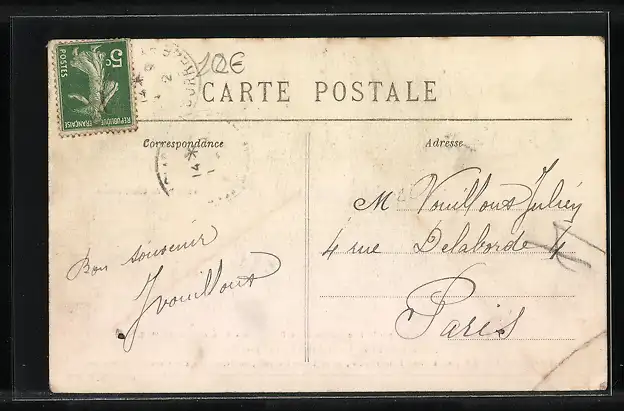 5c
POSTES
REPUBLIQUE FRANÇAISE
10€
CARTE POSTALE
Correspondance
Adresse
M Vouillous Julien
4 rue Delaborde 4
Paris
Bon souvenir
Jvouillous